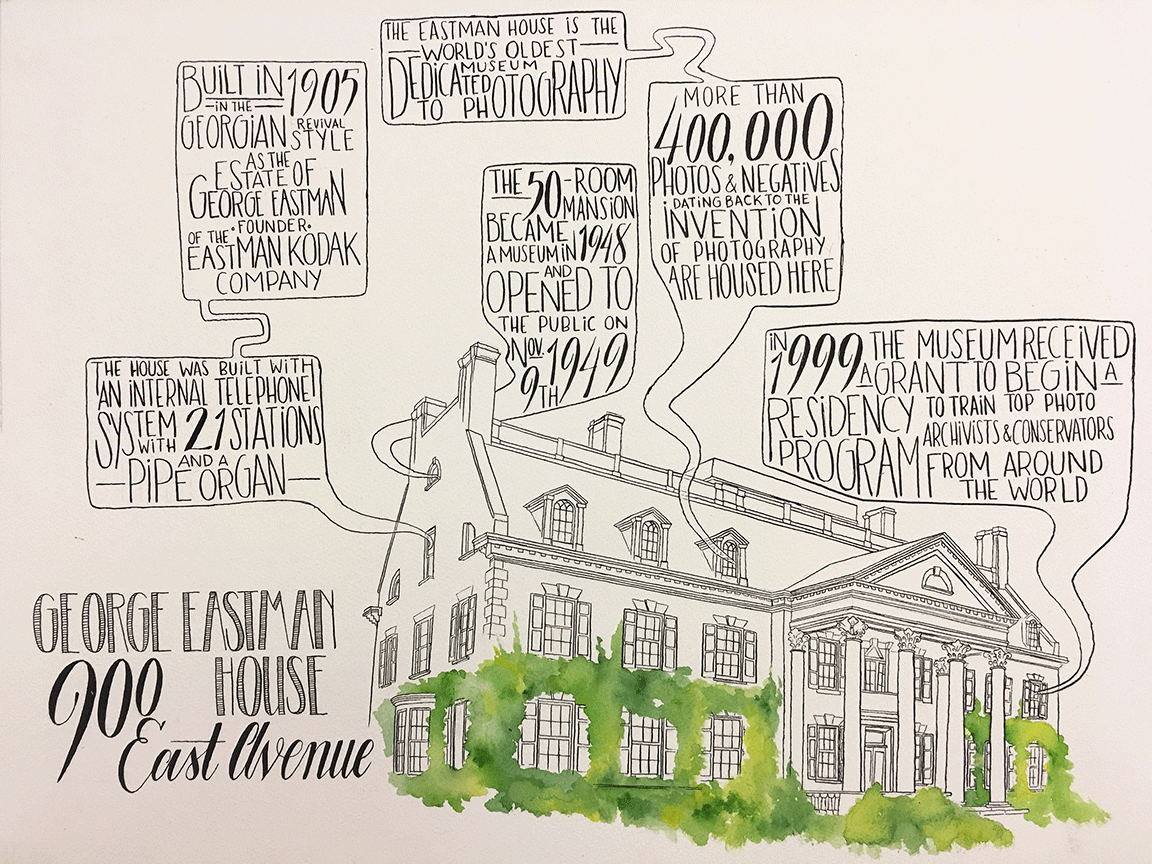 THE EASTMAN HOUSE IS THE
WORLD'S OLDEST
MUSEUM
DEDICATED
TO PHOTOGRAPHY
BUILT IN 1905
IN THE
GEORGIAN REVIVAL STYLE
AS THE
ESTATE OF
GEORGE EASTMAN
·FOUNDER·
OF THE
EASTMAN KODAK
COMPANY
MORE THAN
400,000
PHOTOS & NEGATIVES
DATING BACK TO THE
INVENTION
OF PHOTOGRAPHY
ARE HOUSED HERE
THE 50-ROOM
MANSION
BECAME
A MUSEUM IN 1948
AND
OPENED TO
THE PUBLIC ON
NOV. 9TH 1949
THE HOUSE WAS BUILT WITH
AN INTERNAL TELEPHONE
SYSTEM
WITH 21 STATIONS
AND A
PIPE ORGAN
IN 1999 THE MUSEUM RECEIVED
A GRANT TO BEGIN A
RESIDENCY
PROGRAM
TO TRAIN TOP PHOTO
ARCHIVISTS & CONSERVATORS
FROM AROUND
THE WORLD
GEORGE EASTMAN
HOUSE
900
East Avenue